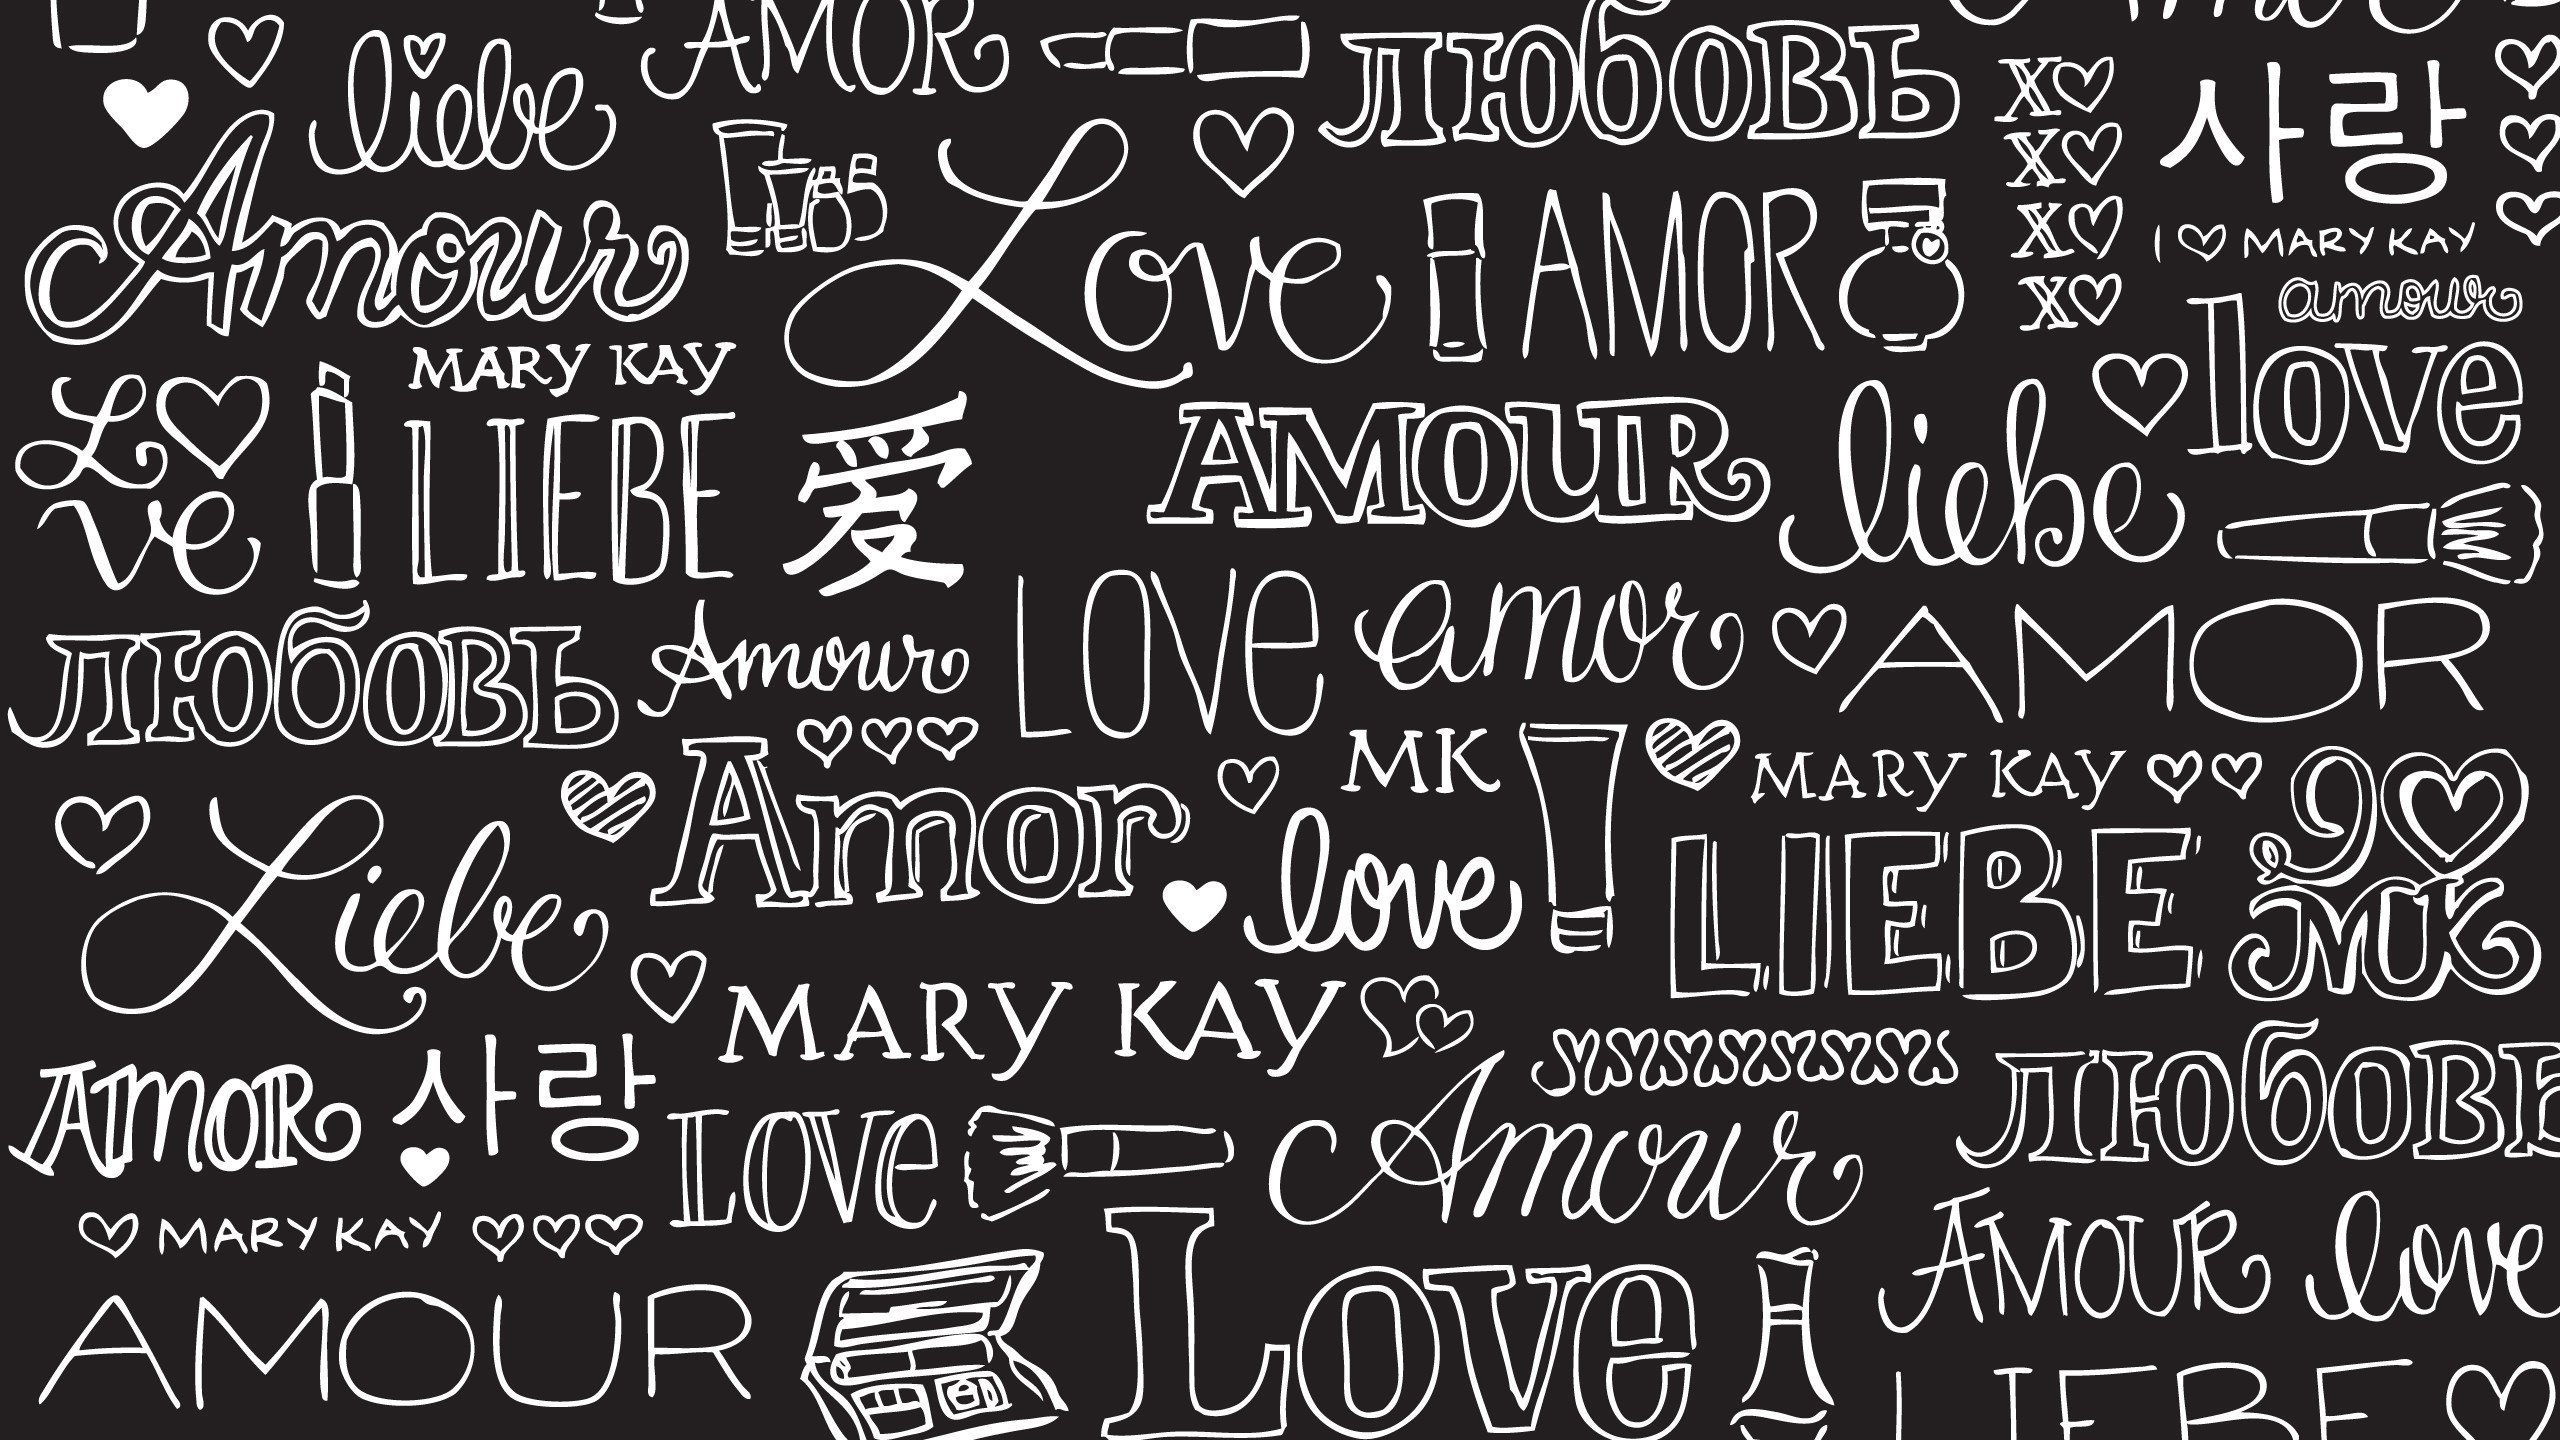 AMOR
любовь
liebe
x
x
x
x
사랑
Amour
Love
AMOR
I MARY KAY
amour
love
MARY KAY
L
ve
LIEBE
爱
AMOUR
liebe
любовь
Amour
LOVE
amor
AMOR
MK
MARY KAY
Amor
love
LIEBE
MK
Liebe
MARY KAY
AMOR
사랑
LOVE
Amour
MARY KAY
AMOUR
Love
AMOUR
love
LIEBE